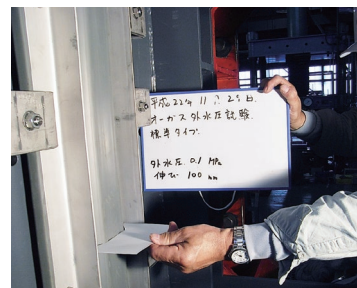 平成22年 11月 25日
オーガス外水圧試験
標準タイプ
外水圧 0.1 MPa
伸び 100 mm